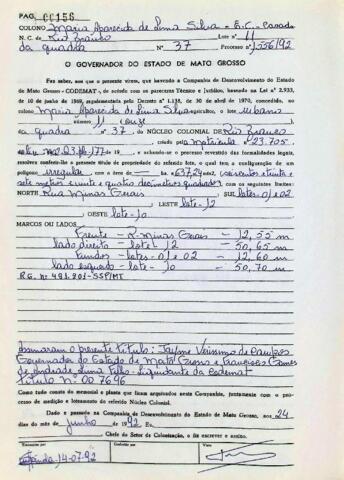 PAG. 00156
COLONO Maria Aparecida de Lima Silva - E.C. Casado
N. C. de Rio Branco Lote n.º 11
da quadra N.º 37 Processo n.º 1556/92
O GOVERNADOR DO ESTADO DE MATO GROSSO
Faz saber, aos que o presente virem, que havendo a Companhia de Desenvolvimento do Estado
de Mato Grosso - CODEMAT-, de acordo com os pareceres Técnico e Jurídico, baseada na Lei n.º 2.933,
de 10 de junho de 1969, regulamentada pelo Decreto n.º 1.138, de 30 de abril de 1970, concedido, ao
colono Maria Aparecida de Lima Silva agricultor, o lote urbano
número 11 (onze
da quadra n.º 37. do NÚCLEO COLONIAL DE Rio Branco
criado pela Matrícula n.º 23.705
de 19 , e achando-se o processo revestido das formalidades legais,
resolveu conferir-lhe o presente título de propriedade do referido lote, o qual tem a configuração de um
polígono irregular com a área de ha 637,24 m2 (seiscentos e trinta e
sete metros e vinte e quatro decímetros quadrados) com os seguintes limites:
NORTE Rua Minas Gerais SUL lotes-01 e 02
LESTE lote-12
OESTE lote-10
MARCOS OU LADOS
Frente - R-Minas Gerais - 12,55 m
lado direito - lote - 12 - 50,65 m
Fundos - lotes - 01 e 02 - 12,60 m
lado esquerdo - lote - 10 - 50,70 m
R.G. Nº 491.201-SSP/MT
Assinaram o presente título: Jayme Veríssimo de Campos
Governador do Estado de Mato Grosso e Francisco Gomes
de Andrade Lima Filho - Liquidante da Codemat
título Nº 007696
Como tudo consta do memorial e planta que ficam arquivados nesta Companhia, juntamente com o
processo de medição e loteamento do referido Núcleo Colonial.
Dado e passado na Companhia de Desenvolvimento do Estado de Mato Grosso, aos 24
dias do mês de junho de 1992 Eu,
Chefe do Setor de Colonização, o fiz escrever e assino.
Visto
14-07-92